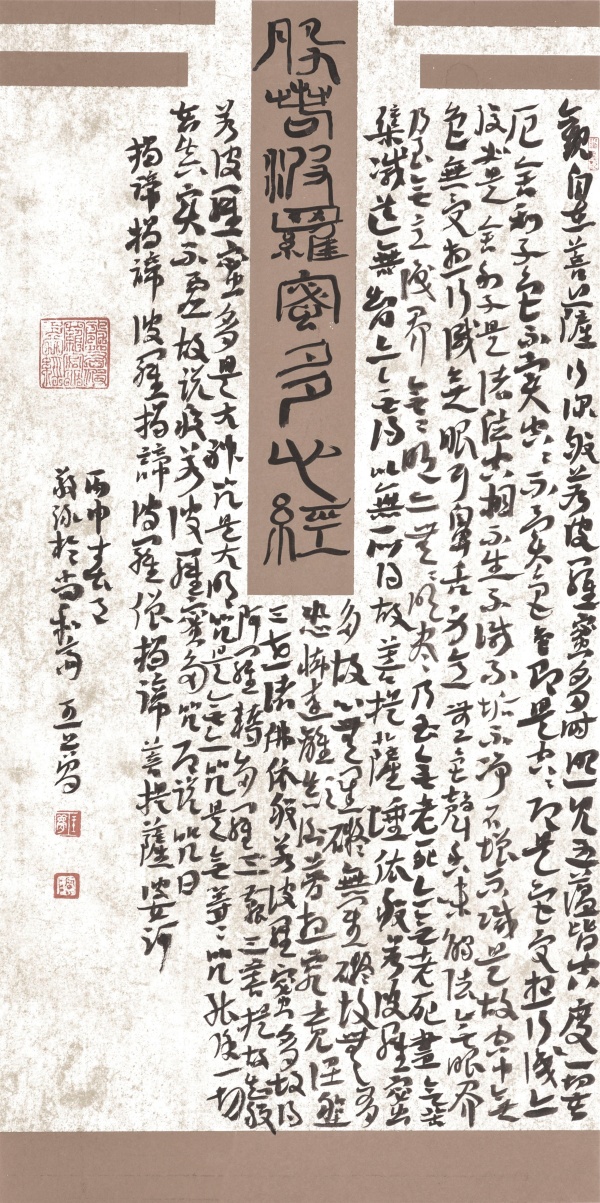 般若波羅蜜多心經
觀自在菩薩行深般若波羅蜜多時照見五蘊皆空度一切苦
厄舍利子色不異空〻不異色色即是空〻即是色受想行識亦
復如是舍利子是諸法空相不生不滅不垢不淨不增不減是故空中無
色無受想行識無眼耳鼻舌身意無色聲香味觸法無眼界
乃至無意識界無〻明亦無〻明盡乃至無老死亦無老死盡無苦
集滅道無智亦無得以無所得故菩提薩埵依般若波羅蜜
多故心無罣礙無罣礙故無有
恐怖遠離顛倒夢想究竟涅槃
三世諸佛依般若波羅蜜多故得
阿耨多羅三藐三菩提故知般
若波羅蜜多是大神咒是大明咒是無上咒是無等〻咒能除一切
苦真實不虛故說般若波羅蜜多咒即說咒曰
揭諦揭諦波羅揭諦波羅僧揭諦菩提薩婆訶
丙申春月
敬録於尚和齋